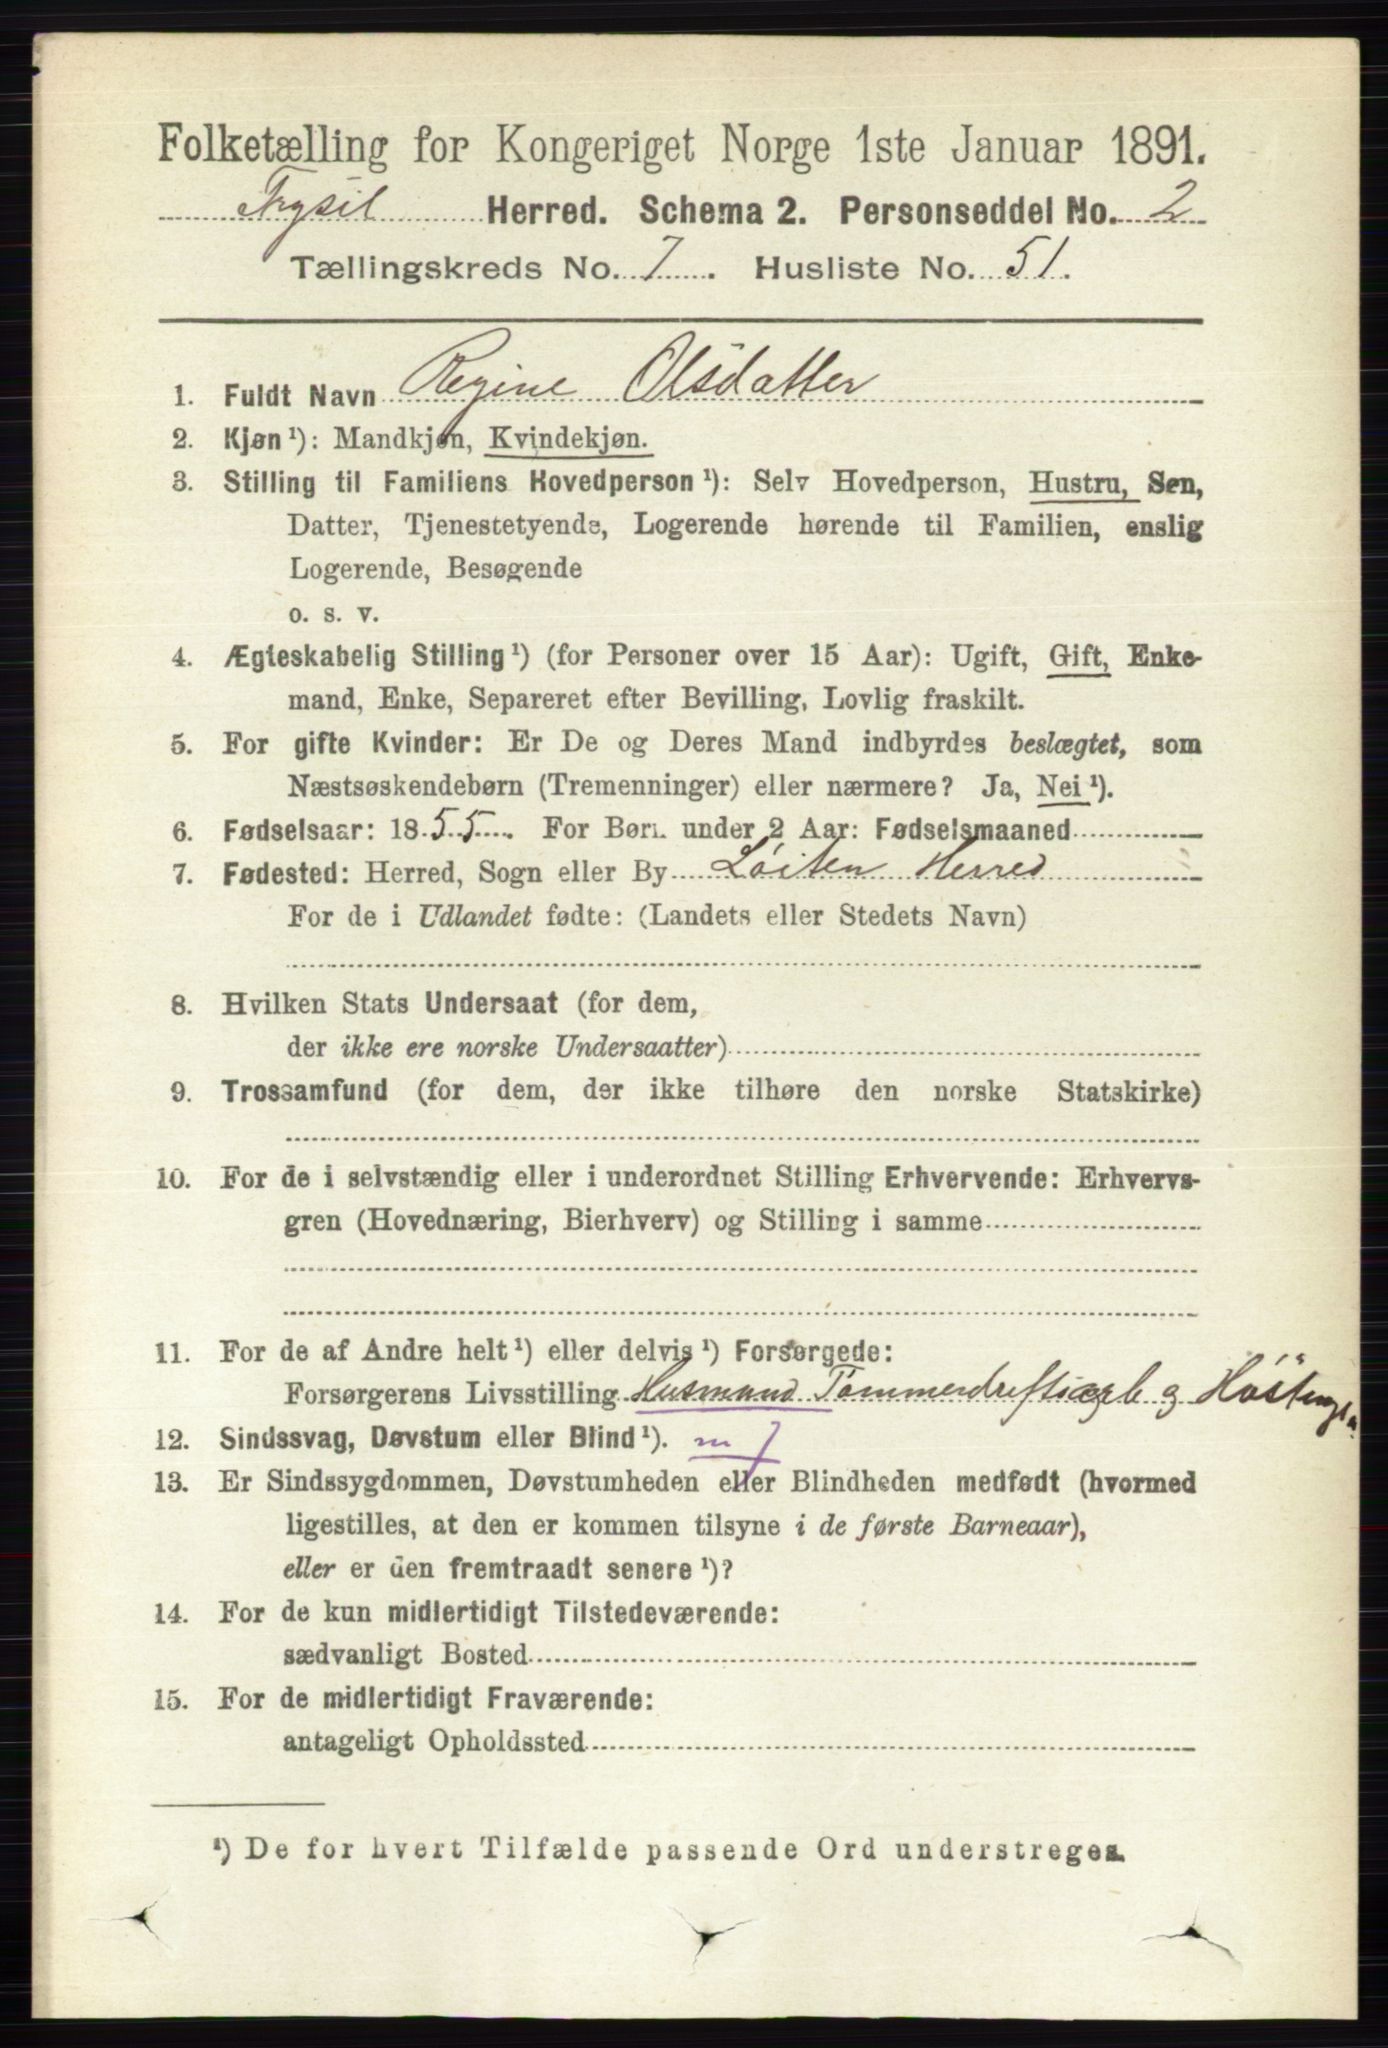 Folketælling for Kongeriget Norge 1ste Januar 1891.
Trysil Herred. Schema 2. Personseddel No. 2
Tællingskreds No. 7. Husliste No. 51.
1. Fuldt Navn Regine Olsdatter
2. Kjøn ¹): Mandkjøn, Kvindekjøn.
3. Stilling til Familiens Hovedperson ¹): Selv Hovedperson, Hustru, Søn,
Datter, Tjenestetyende, Logerende hørende til Familien, enslig
Logerende, Besøgende
o. s. v.
4. Ægteskabelig Stilling ¹) (for Personer over 15 Aar): Ugift, Gift, Enke-
mand, Enke, Separeret efter Bevilling, Lovlig fraskilt.
5. For gifte Kvinder: Er De og Deres Mand indbyrdes beslægtet, som
Næstsøskendebørn (Tremenninger) eller nærmere? Ja, Nei ¹).
6. Fødselsaar: 1855. For Børn under 2 Aar: Fødselsmaaned
7. Fødested: Herred, Sogn eller By Løiten Herred
For de i Udlandet fødte: (Landets eller Stedets Navn)
8. Hvilken Stats Undersaat (for dem,
der ikke ere norske Undersaatter)
9. Trossamfund (for dem, der ikke tilhøre den norske Statskirke)
10. For de i selvstændig eller i underordnet Stilling Erhvervende: Erhvervs-
gren (Hovednæring, Bierhverv) og Stilling i samme
11. For de af Andre helt ¹) eller delvis ¹) Forsørgede:
Forsørgerens Livsstilling Husmand Tømmerdriftsarb
12. Sindssvag, Døvstum eller Blind ¹). m 7
13. Er Sindssygdommen, Døvstumheden eller Blindheden medfødt (hvormed
ligestilles, at den er kommen tilsyne i de første Barneaar),
eller er den fremtraadt senere ¹)?
14. For de kun midlertidigt Tilstedeværende:
sædvanligt Bosted
15. For de midlertidigt Fraværende:
antageligt Opholdssted
¹) De for hvert Tilfælde passende Ord understreges.